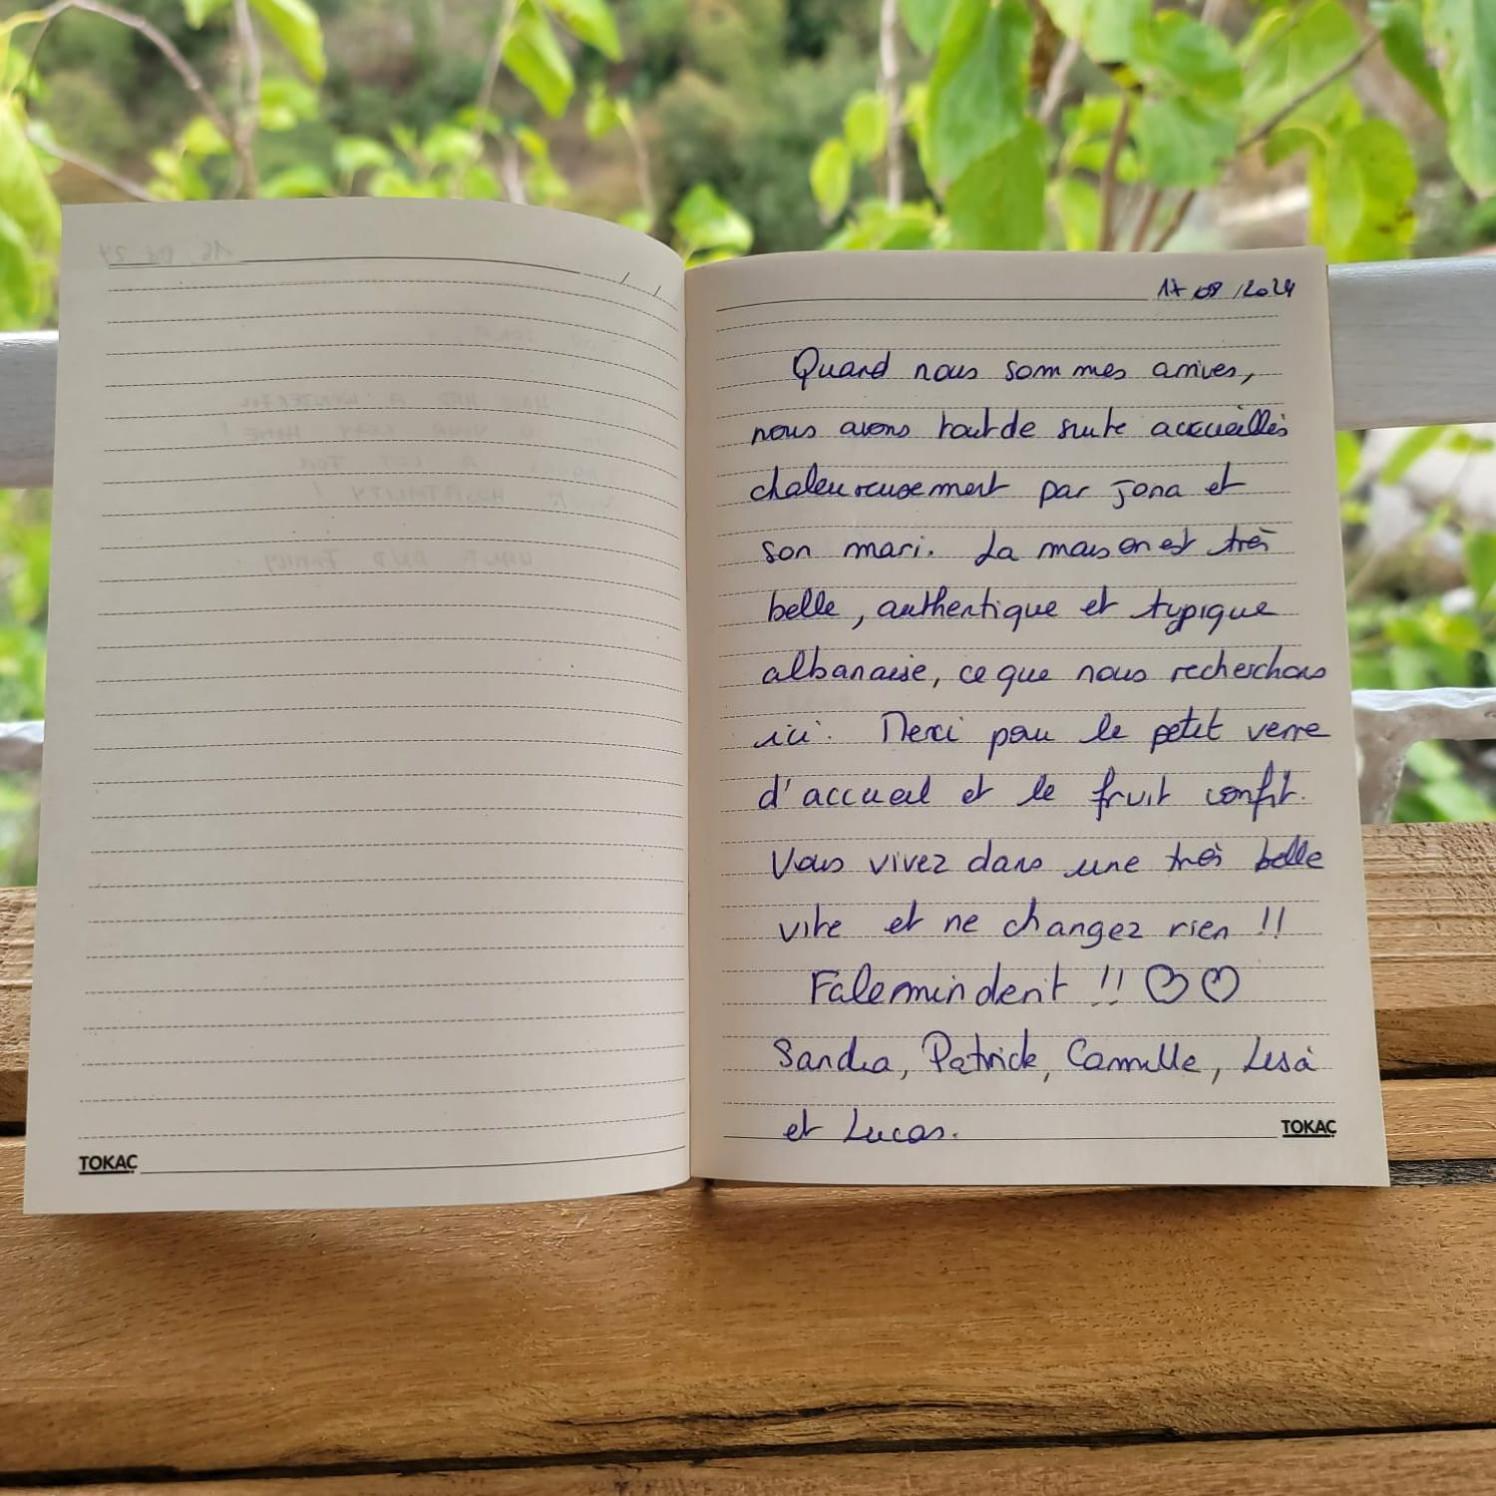 17 08 /2024
Quand nous sommes arrives,
nous avons tout de suite accueillis
chaleureusement par Jona et
son mari. La maison est très
belle, authentique et typique
albanaise, ce que nous recherchons
ici. Merci pour le petit verre
d'accueil et le fruit confit.
Vous vivez dans une très belle
ville et ne changez rien !!
Faleminderit !! ♡♡
Sandra, Patrick, Camille, Lisa
et Lucas.
TOKAÇ
TOKAÇ